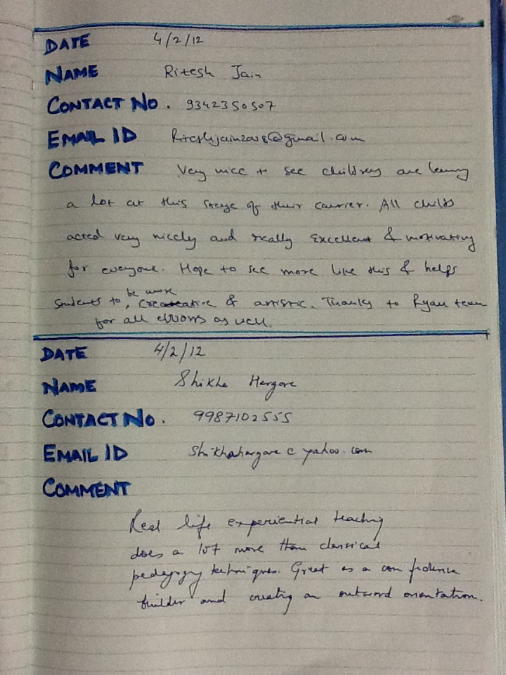 DATE 4/2/12
NAME Ritesh Jain
CONTACT NO. 9342350507
EMAIL ID Riteshjain2008@gmail.com
COMMENT Very nice to see children are learning
a lot at this stage of their carrier. All childs
acted very nicely and really excellent & motivating
for everyone. Hope to see more like this & helps
students to be more creative & artistic. Thanks to Ryan team
for all efforts as well.
DATE 4/2/12
NAME Shikha
CONTACT NO. 9987102555
EMAIL ID @yahoo.com
COMMENT
Real life experiential teaching
does a lot more than classical
pedagogy techniques. Great as a confidence
builder and creating an outward orientation.